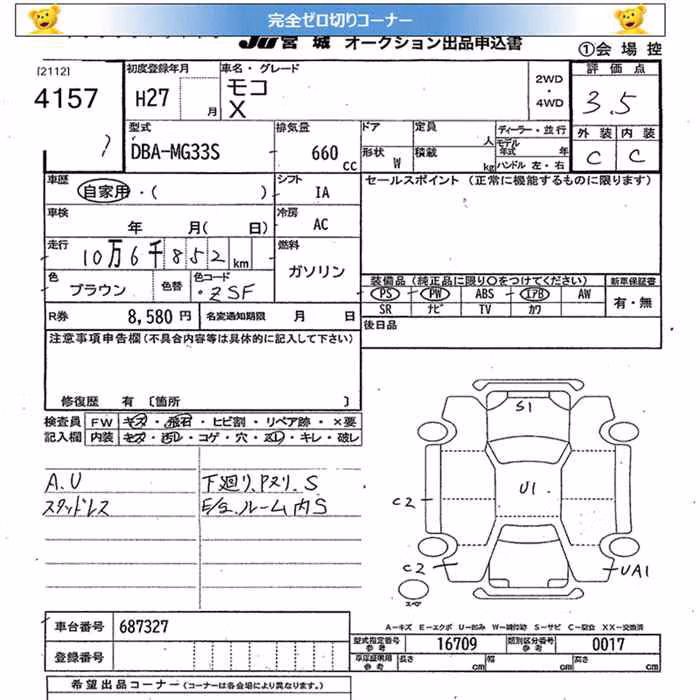 完全ゼロ切りコーナー
JU 宮城 オークション出品申込書
①会場控
[2112]
4157
初度登録年月
H27 月
車名・グレード
モコ
X
2WD
・
4WD
評価点
3.5
外装 内装
C C
型式
DBA-MG33S
排気量
660 CC
ドア
形状 W
定員 人
積載 kg
ディーラー・並行
モデル年式 年
ハンドル 左・右
車歴
自家用・( )
シフト
IA
セールスポイント (正常に機能するものに限ります)
車検
年 月( 日)
冷房
AC
走行
10万6千852km
燃料
ガソリン
色
ブラウン
色替
色コード
・ZSF
装備品(純正品に限り〇をつけてください) 新車保証書
PS PW ABS エアB AW
SR ナビ TV カワ
有・無
R券 8,580円 名変通知期限 月 日
後日品
注意事項申告欄(不具合内容等は具体的に記入して下さい)
修復歴 有 [箇所 ]
検査員 FW キズ・飛石・ヒビ割・リペア跡・×要
記入欄 内装 キズ・汚レ・コゲ・穴・スレ・キレ・破レ
A.U
スタッドレス
下廻り.Pヌリ.S
E/g.ルーム内S
S1
U1
C2
C2
UA1
スペア
A-キズ E-エクボ U-凹み W-補修跡 S-サビ C-腐食 XX-交換済
車台番号 687327
登録番号
型式指定番号参考 16709 類別区分番号参考 0017
車庫証明用参考 長さ cm 幅 cm 高さ cm
希望出品コーナー(コーナーは各会場により異なります。)